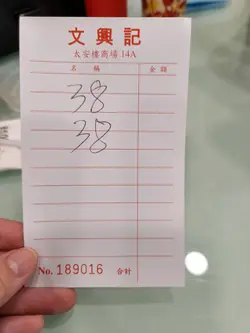 文興記
太安樓商場 14A
名稱 金額
38
38
No. 189016 合計